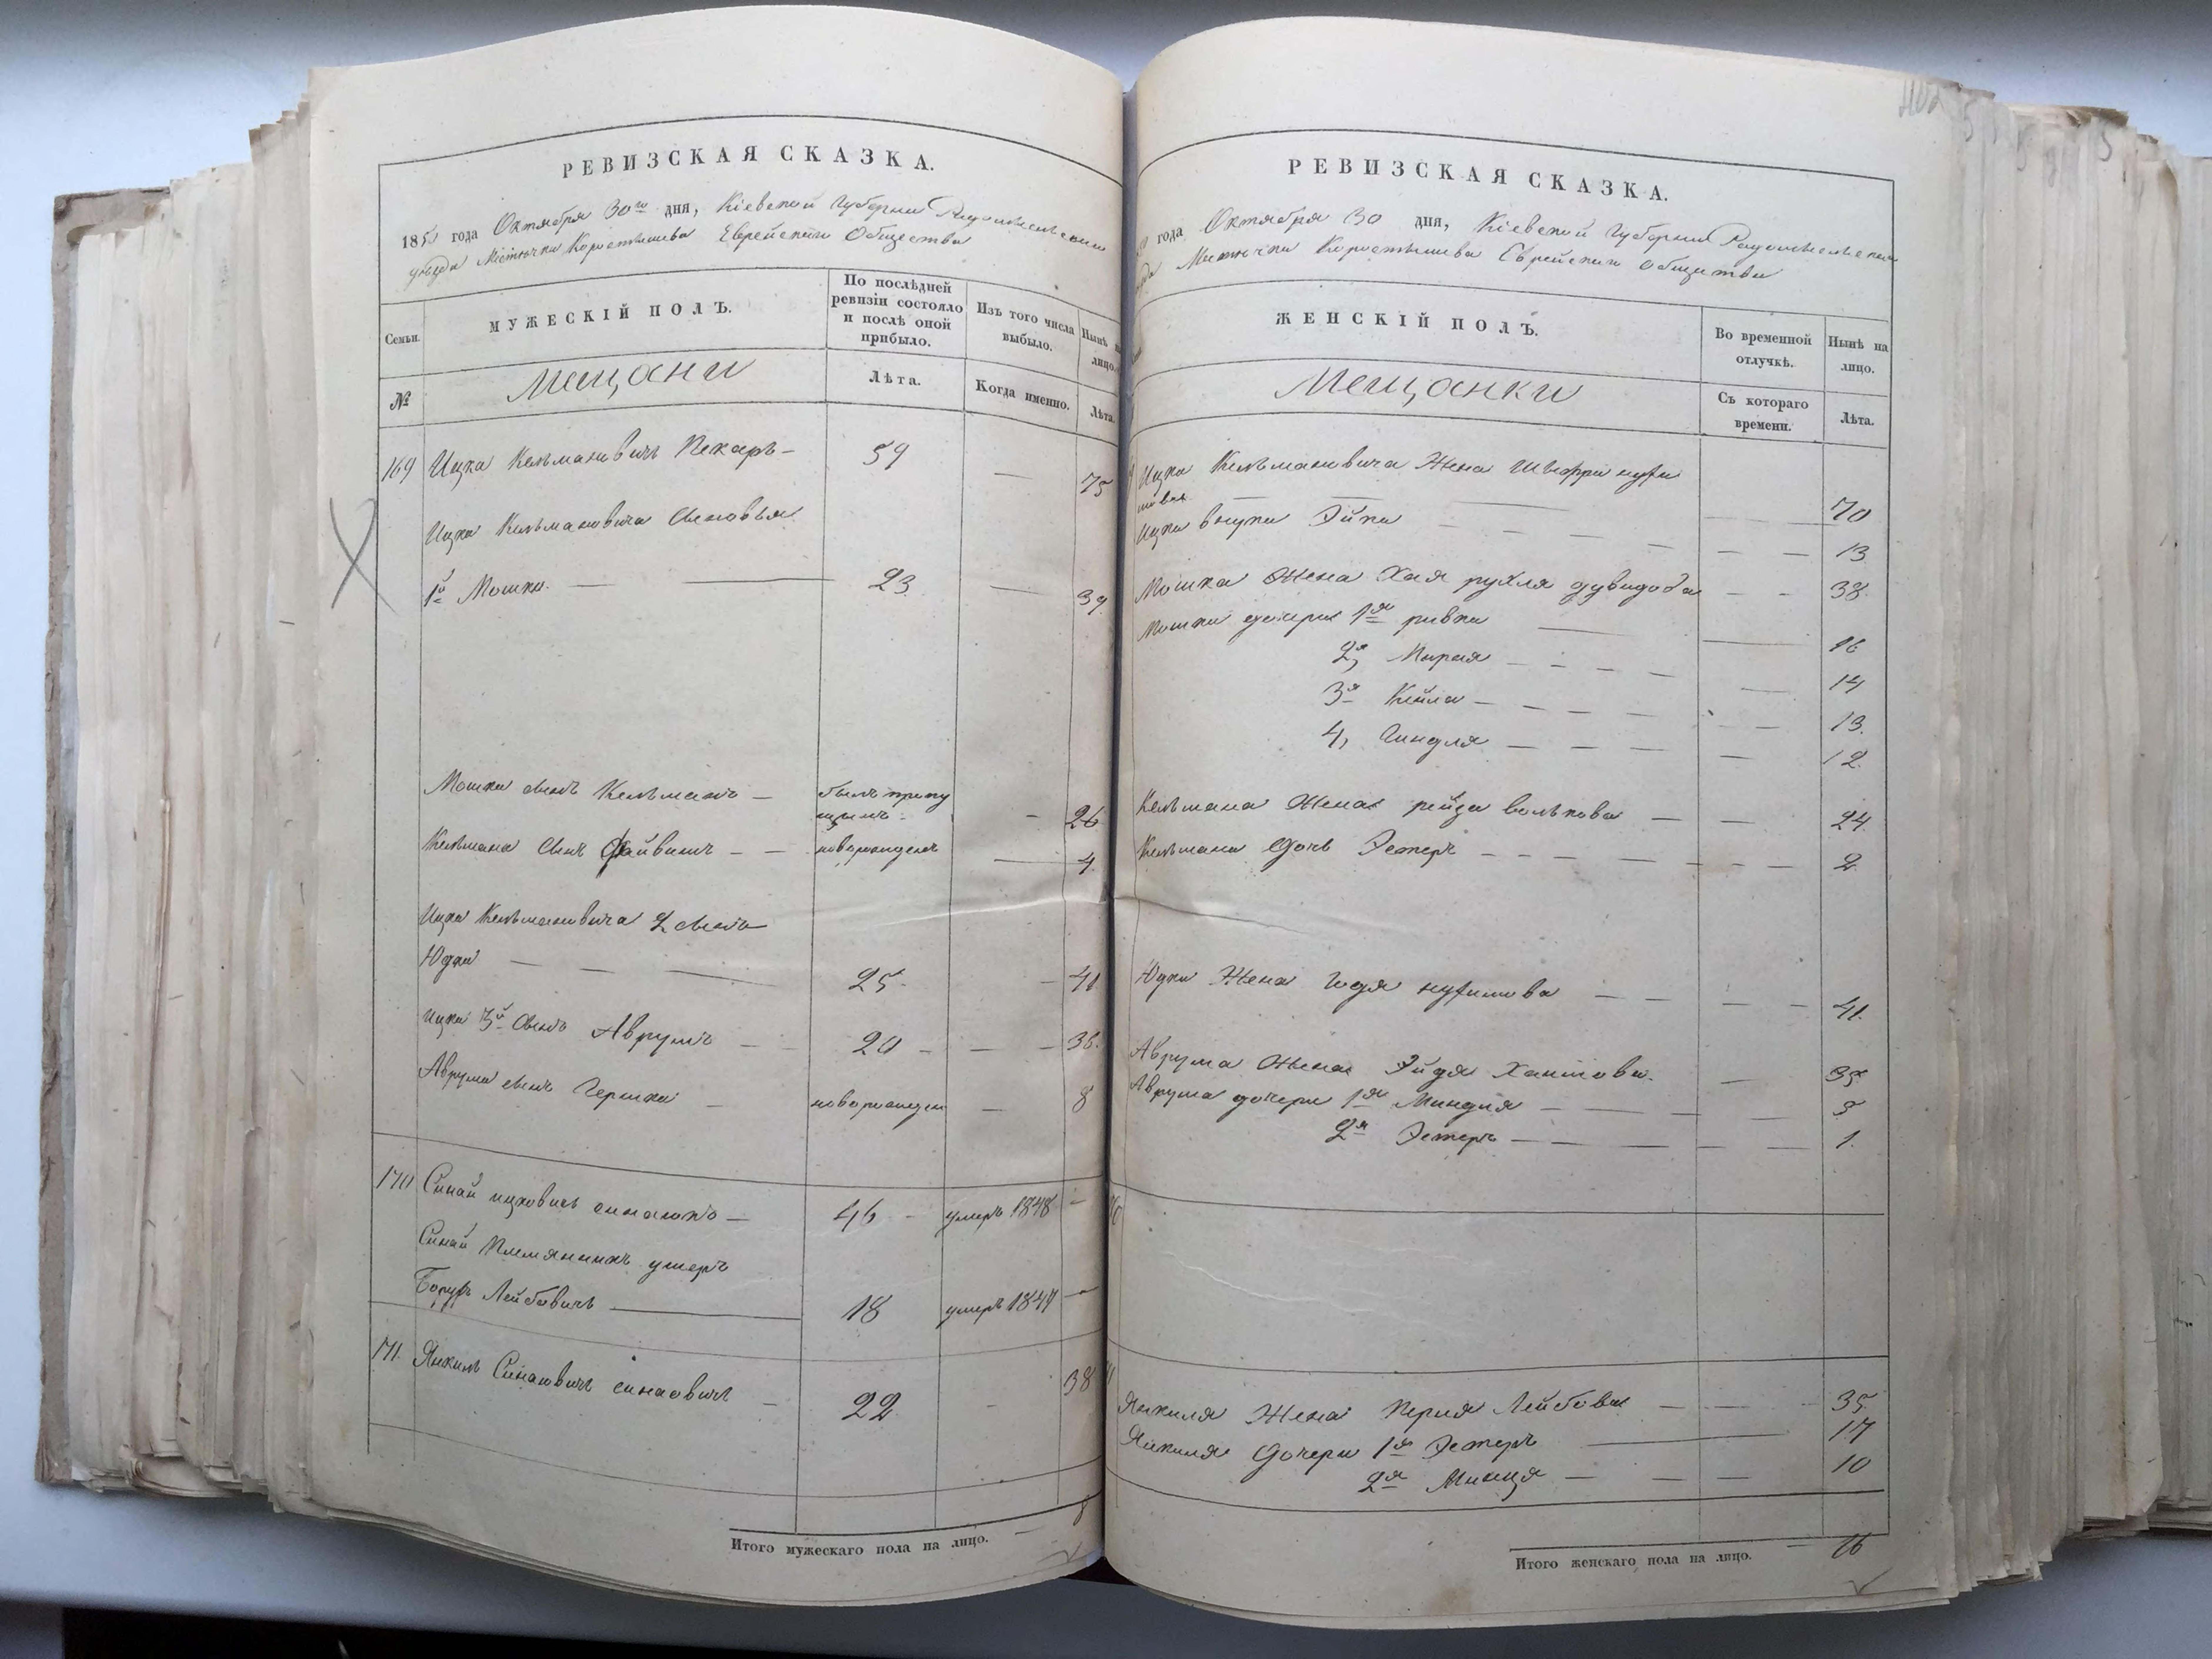 РЕВИЗСКАЯ СКАЗКА.
1850 года Октября 30го дня, Кіевской Губерніи Радомысльскаго
уѣзда Мѣстечка Коростышева Еврейскаго Общества
Семьи.
МУЖЕСКІЙ ПОЛЪ.
По послѣдней ревизіи состояло и послѣ оной прибыло.
Изъ того числа выбыло.
Нынѣ на лицо.
№
Мещани
Лѣта.
Когда именно.
Лѣта.
169 Ицка Кельмановичъ Пекаръ — 59 — 75
Ицка Кельмановича сыновья
1й Мошко — 23 — 39
Мошка сынъ Кельманъ — былъ пропущенъ — 26
Кельмана сынъ Файвишъ — новорожденъ — 4
Ицка Кельмановича 2 сынъ
Юдка — 25 — 41
Ицка 3й сынъ Аврумъ — 20 — 36
Аврума сынъ Гершко — новорожден — 8
170 Синай Ицковичъ — 46 умеръ 1848 —
Синая племянникъ умеръ
Борухъ Лейбовичъ — 18 умеръ 1847 —
171 Янкель Синаевичъ Синаовичъ — 22 - 38
Итого мужескаго пола на лицо. — 8
РЕВИЗСКАЯ СКАЗКА.
года Октября 30 дня, Кіевской Губерніи Радомысльскаго
Мѣстечка Коростышева Еврейскаго Общества
ЖЕНСКІЙ ПОЛЪ.
Во временной отлучкѣ.
Нынѣ на лицо.
Мещанки
Съ котораго времени.
Лѣта.
Ицка Кельмановича Жена
70
Ицка внука Эйка — 13
Мошка Жена Хая рухля — 38
Мошки дочери 1я ривка — 16
2я — 14
3я Кейла — 13
4, Гиндля — 12
Кельмана Жена рейза волькова — 24
Кельмана дочь Эстеръ — 2
Юдки Жена — 41
Аврума Жена — 35
Аврума дочери 1я Миндля — 5
2я Эстеръ — 1.
Янкиля Жена Перля Лейбова — 35
Янкиля дочери 1я Эстеръ — 17
2я — 10
Итого женскаго пола на лицо. — 16